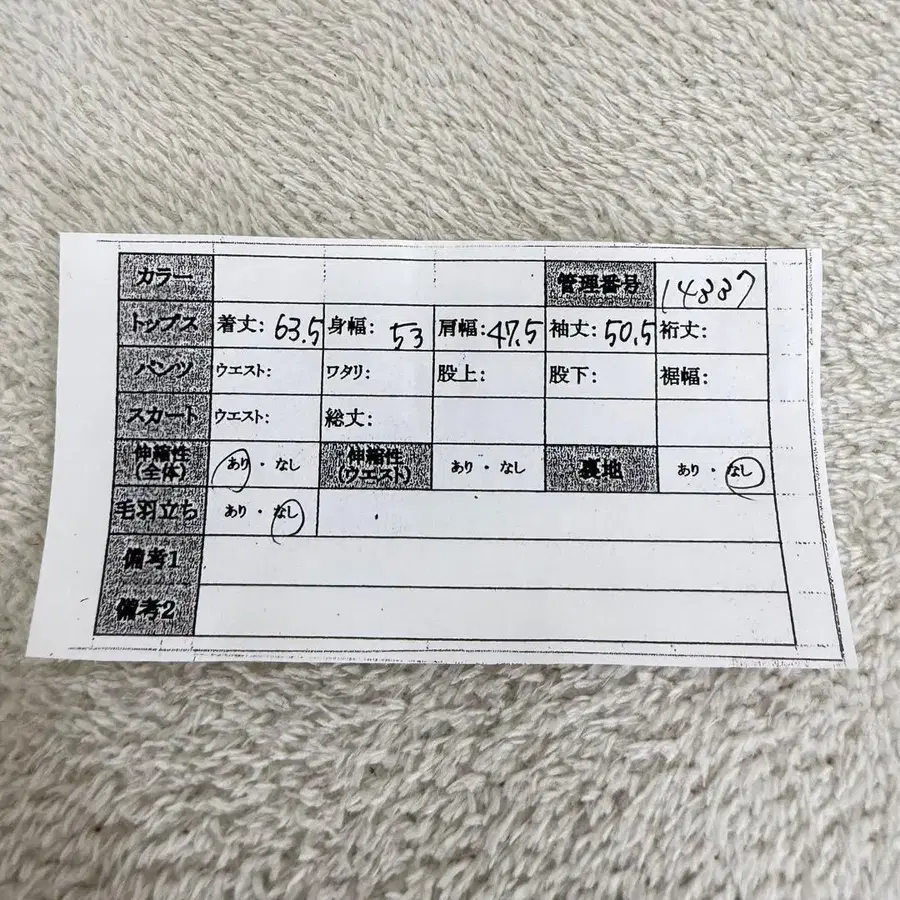 カラー 管理番号 14337
トップス 着丈: 63.5 身幅: 53 肩幅: 47.5 袖丈: 50.5 裄丈:
パンツ ウエスト: ワタリ: 股上: 股下: 裾幅:
スカート ウエスト: 総丈:
伸縮性(全体) あり・なし 伸縮性(ウエスト) あり・なし 裏地 あり・なし
毛羽立ち あり・なし
備考1
備考2